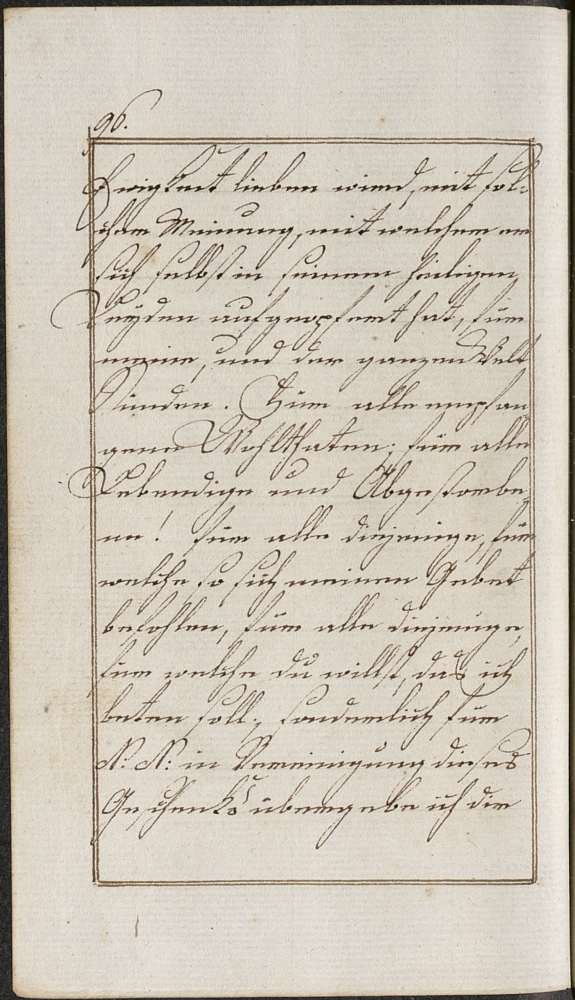 96.
Ewigkeit lieben wird, mit sol-
cher Meinung, mit welcher er
sich selbst in seinem heiligen
Leyden aufgeopfert hat, für
meine, und der ganzen Welt
Sünden. Für alle empfan
gene Wohlthaten; für alle
Lebendige und Abgestorbe
ne! für alle diejenige, für
welche, so sich meinem Gebet
befohlen, für alle diejenige,
für welche du willst, daß ich
beten soll; sonderlich für
N: N: in Vereinigung dieses
Geschenks übergebe ich dir